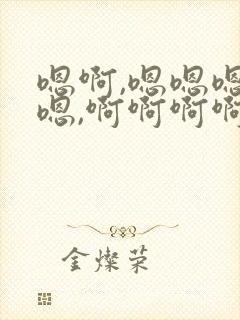 嗯啊,嗯嗯嗯
嗯,啊啊啊啊
金燦荣